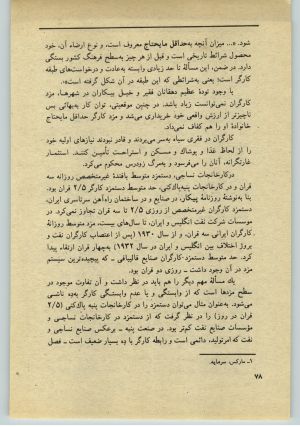 شود. «... میزان آنچه به‌حداقل مایحتاج معروف است، و نوع ارضاء آن، خود
محصول شرائط تاریخی است و قبل از هر چیز به‌سطح فرهنگ کشور بستگی
دارد. در ضمن، این مسألهٔ تا حد زیادی وابسته به‌عادت و درخواست‌های طبقه
کارگر است؛ یعنی به‌شرائطی که این طبقه در آن شکل گرفته است».
با وجود تودهٔ عظیم دهقانان فقیر و خیل بیکاران در شهرها، مزد
کارگران نمی‌توانست زیاد باشد. در چنین موقعیتی، توان کار به‌بهائی بس
ناچیزتر از ارزش واقعی خود خریداری می‌شد و مزد کارگر حداقل مایحتاج
خانوادهٔ او را هم کفاف نمی‌داد.
کارگران در فقری سیاه به‌سر می‌بردند و قادر نبودند نیازهای اولیه خود
را از لحاظ غذا و پوشاک و مسکن و استراحت تأمین کنند. استثمار
غارتگرانه، آنان را می‌فرسود و به‌مرگ زودرس محکوم می‌کرد.
درکارخانجات نساجی، دستمزد متوسط بافندهٔ غیرمتخصص روزانه سه
قران و در کارخانجات پنبه‌پاک‌کنی، حد متوسط دستمزد کارگر ۲/۵ قران بود.
بنا به‌نوشتهٔ روزنامهٔ پیکار، در صنایع و در ساختمان راه‌آهن سرتاسری ایران،
دستمزد کارگران غیرمتخصص از روزی ۲/۵ تا سه قران تجاوز نمی‌کرد. در
مؤسسات شرکت نفت انگلیس و ایران، تا سال‌های بیست، مزد متوسط روزانهٔ
کارگران ایرانی سه قران، و از سال ۱۹۳۰ (پس از اعتصاب کارگران نفت و
بروز اختلاف بین انگلیس و ایران در سال ۱۹۳۲) به‌چهار قران ارتقاء پیدا
کرد. حد متوسط دستمزد کارگران صنایع قالیبافی – که پیچیده‌ترین سیستم
مزد در آن وجود داشت – روزی دو قران بود.
یك مسألهٔ مهم دیگر را هم باید در نظر داشت و آن تفاوت موجود در
سطح مزدها است که از وابستگی و یا عدم وابستگی کارگر به‌ده ناشی
می‌شود. به‌عنوان مثال می‌توان دستمزد را در کارخانجات پنبه‌پاک‌کنی (۲/۵
قران در روز) را در نظر گرفت که از دستمزد در کارخانجات نساجی و
مؤسسات صنایع نفت کم‌تر بود. در صنعت پنبه – برعکس صنایع نساجی و
نفت که امرتولید، دائمی است و رابطهٔ کارگر با ده بسیار ضعیف است – فصل
۱- مارکس، سرمایه.
۷۸